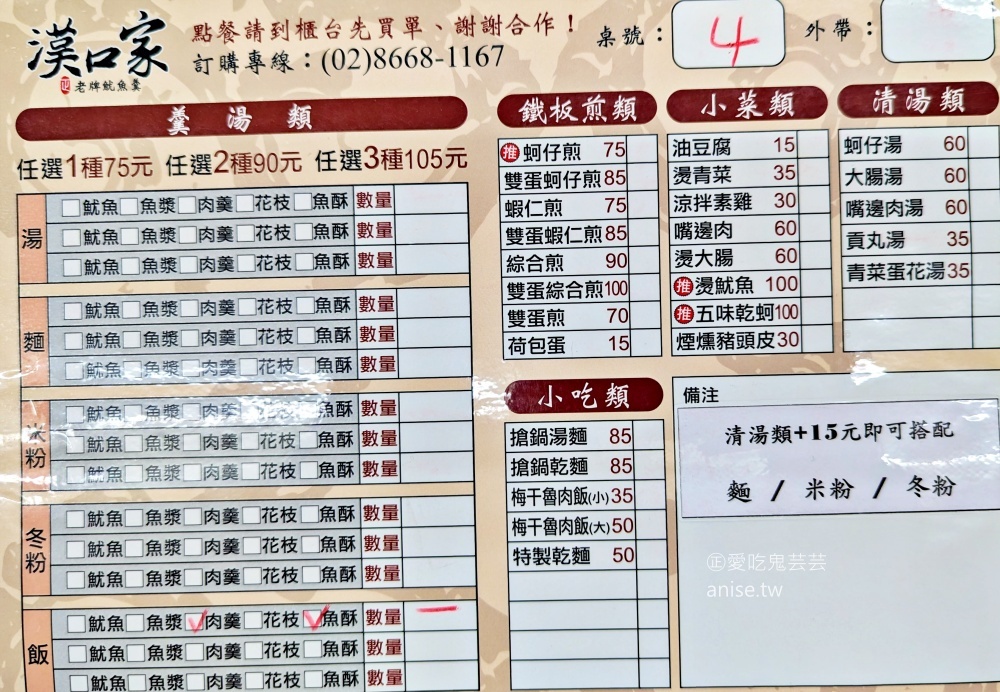 漢口家
正 老牌魷魚羹
點餐請到櫃台先買單、謝謝合作！
訂購專線：(02)8668-1167
桌號： 4
外帶：
羹湯類
任選1種75元 任選2種90元 任選3種105元
湯
魷魚 魚漿 肉羹 花枝 魚酥 數量
魷魚 魚漿 肉羹 花枝 魚酥 數量
魷魚 魚漿 肉羹 花枝 魚酥 數量
麵
魷魚 魚漿 肉羹 花枝 魚酥 數量
魷魚 魚漿 肉羹 花枝 魚酥 數量
魷魚 魚漿 肉羹 花枝 魚酥 數量
米粉
魷魚 魚漿 肉羹 花枝 魚酥 數量
魷魚 魚漿 肉羹 花枝 魚酥 數量
魷魚 魚漿 肉羹 花枝 魚酥 數量
冬粉
魷魚 魚漿 肉羹 花枝 魚酥 數量
魷魚 魚漿 肉羹 花枝 魚酥 數量
魷魚 魚漿 肉羹 花枝 魚酥 數量
飯
魷魚 魚漿 ✓肉羹 花枝 ✓魚酥 數量 一
魷魚 魚漿 肉羹 花枝 魚酥 數量
魷魚 魚漿 肉羹 花枝 魚酥 數量
鐵板煎類
推 蚵仔煎 75
雙蛋蚵仔煎 85
蝦仁煎 75
雙蛋蝦仁煎 85
綜合煎 90
雙蛋綜合煎 100
雙蛋煎 70
荷包蛋 15
小吃類
搶鍋湯麵 85
搶鍋乾麵 85
梅干魯肉飯(小) 35
梅干魯肉飯(大) 50
特製乾麵 50
小菜類
油豆腐 15
燙青菜 35
涼拌素雞 30
嘴邊肉 60
燙大腸 60
推 燙魷魚 100
推 五味乾蚵 100
煙燻豬頭皮 30
清湯類
蚵仔湯 60
大腸湯 60
嘴邊肉湯 60
貢丸湯 35
青菜蛋花湯 35
備注
清湯類+15元即可搭配
麵 / 米粉 / 冬粉
正愛吃鬼芸芸
anise.tw